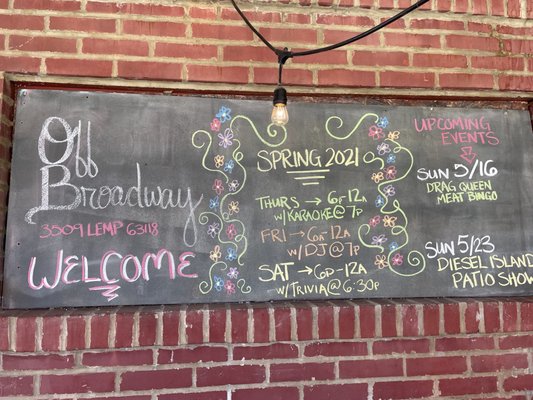 Off
Broadway
3509 LEMP 63118
WELCOME
SPRING 2021
THURS → 6P-12A
W/KARAOKE@7P
FRI → 6P-12A
W/DJ@7P
SAT → 6P-12A
W/TRIVIA@6:30P
UPCOMING
EVENTS
SUN 5/16
DRAG QUEEN
MEAT BINGO
SUN 5/23
DIESEL ISLAND
PATIO SHOW